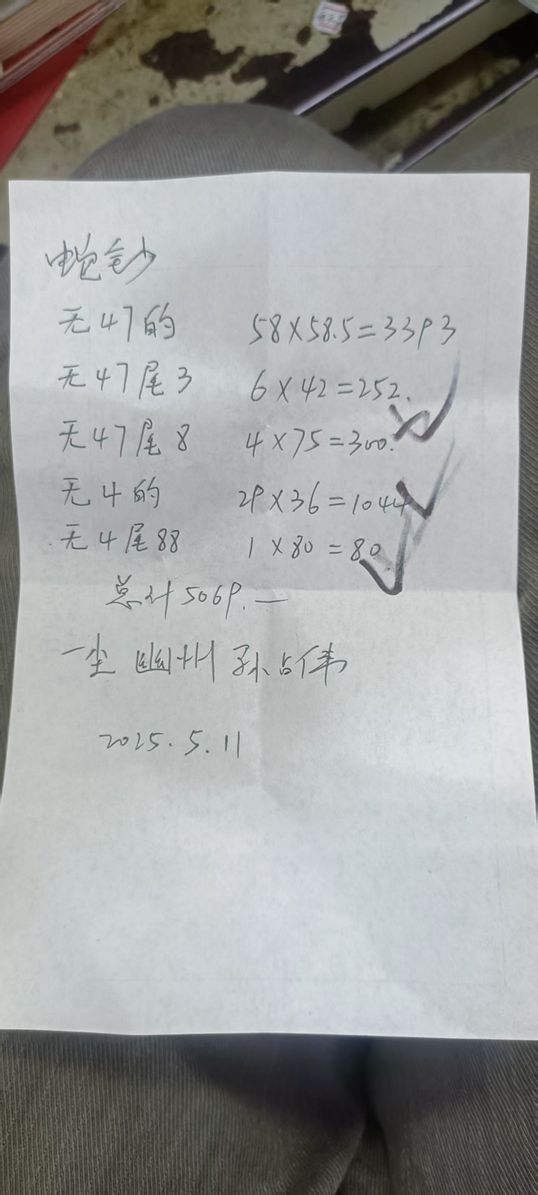 蛇钞
无47的 58×58.5=3393
无47尾3 6×42=252.
无47尾8 4×75=300.
无4的 29×36=1044
无4尾88 1×80=80.
总计5069.一
一尘 幽州 孙占伟
2025.5.11